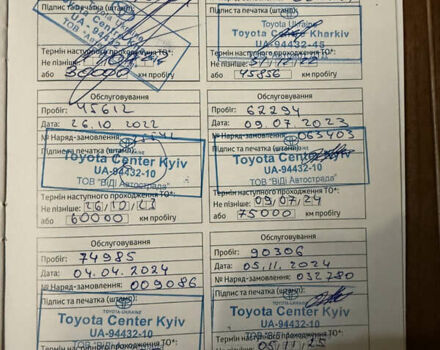 Підпис та печатка (штамп):
Toyota Center Kyiv
UA-94432-10
Термін наступного проходження ТО*:
Не пізніше:
або 30000 км пробігу
Підпис та печатка (штамп):
Toyota Ukraine
Toyota Center Kharkiv
UA-94432-45
Термін наступного проходження ТО*:
Не пізніше:
або 45856 км пробігу
Обслуговування
Пробіг: 45612
Дата: 26.10.2022
№ Наряд-замовлення:
Підпис та печатка (штамп):
Toyota Center Kyiv
UA-94432-10
ТОВ "ВіДі Автострада"
Термін наступного проходження ТО*:
Не пізніше: 26/10/23
або 60000 км пробігу
Обслуговування
Пробіг: 62294
Дата: 09.07.2023
№ Наряд-замовлення: 063403
Підпис та печатка (штамп):
Toyota Center Kyiv
UA-94432-10
ТОВ "ВіДі Автострада"
Термін наступного проходження ТО*:
Не пізніше: 09/07/24
або 75000 км пробігу
Обслуговування
Пробіг: 74985
Дата: 04.04.2024
№ Наряд-замовлення: 009086
Підпис та печатка (штамп):
TOYOTA-UKRAINE
Toyota Center Kyiv
UA-94432-10
Обслуговування
Пробіг: 90306
Дата: 05.11.2024
№ Наряд-замовлення: 032780
Підпис та печатка (штамп):
TOYOTA-UKRAINE
Toyota Center Kyiv
UA-94432-10
05/11/25